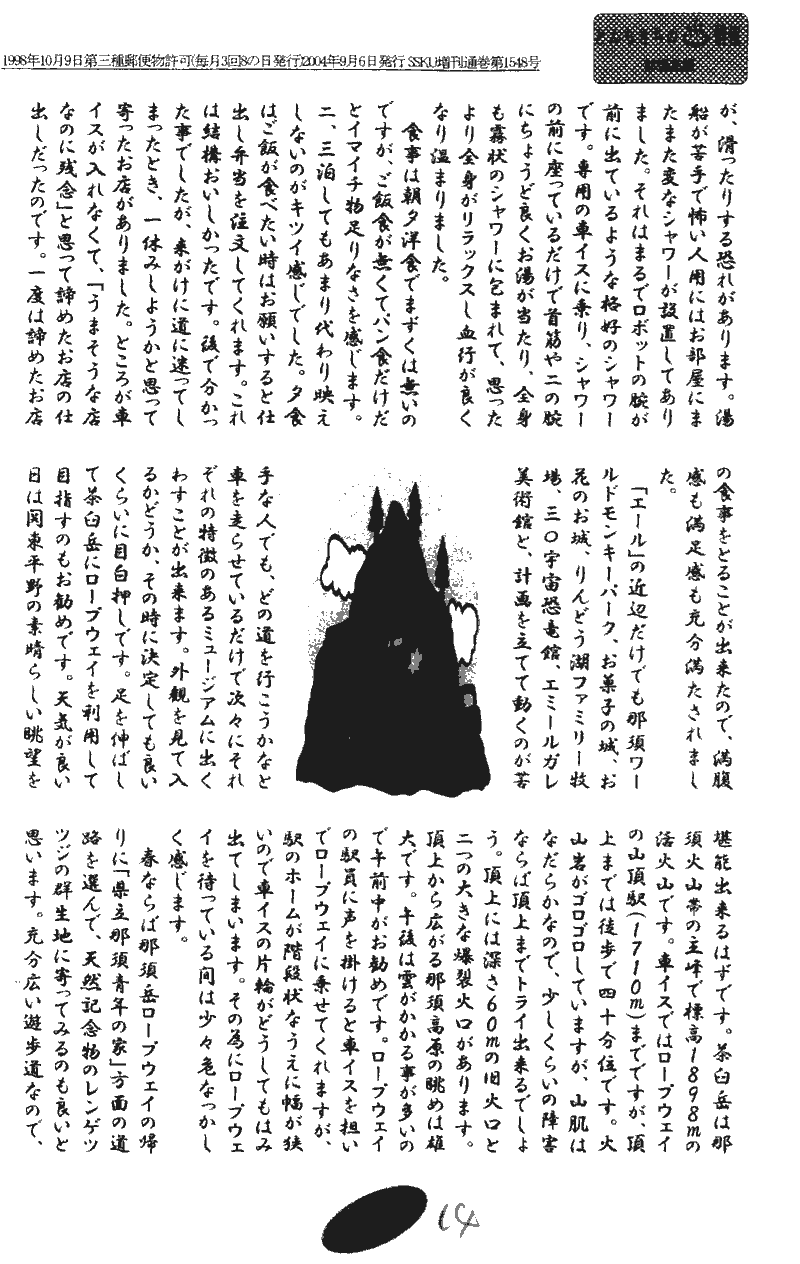 1998年10月9日第三種郵便物許可(毎月3回8の日発行)2004年9月6日発行 SSKU増刊通巻第1548号
が、滑ったりする恐れがあります。湯
船が苦手で怖い人用にはお部屋にま
たまた変なシャワーが設置してあり
ました。それはまるでロボットの腕が
前に出ているような格好のシャワー
です。専用の車イスに乗り、シャワー
の前に座っているだけで首筋や二の腕
にちょうど良くお湯が当たり、全身
も霧状のシャワーに包まれて、思った
より全身がリラックスし血行が良く
なり温まりました。
食事は朝夕洋食でまずくは無いの
ですが、ご飯食が無くてパン食だけだ
とイマイチ物足りなさを感じます。
二、三泊してもあまり代わり映え
しないのがキツイ感じでした。夕食
はご飯が食べたい時はお願いすると仕
出し弁当を注文してくれます。これ
は結構おいしかったです。後で分かっ
た事でしたが、来がけに道に迷ってし
まったとき、一休みしようかと思って
寄ったお店がありました。ところが車
イスが入れなくて、「うまそうな店
なのに残念」と思って諦めたお店の仕
出しだったのです。一度は諦めたお店
の食事をとることが出来たので、満腹
感も満足感も充分満たされまし
た。
「エール」の近辺だけでも那須ワー
ルドモンキーパーク、お菓子の城、お
花のお城、りんどう湖ファミリー牧
場、三〇宇宙恐竜館、エミールガレ
美術館と、計画を立てて動くのが苦
手な人でも、どの道を行こうかなと
車を走らせているだけで次々にそれ
ぞれの特徴のあるミュージアムに出く
わすことが出来ます。外観を見て入
るかどうか、その時に決定しても良い
くらいに目白押しです。足を伸ばし
て茶臼岳にロープウェイを利用して
目指すのもお勧めです。天気が良い
日は関東平野の素晴らしい眺望を
堪能出来るはずです。茶臼岳は那
須火山帯の主峰で標高1898mの
活火山です。車イスではロープウェイ
の山頂駅(1710m)までですが、頂
上までは徒歩で四十分位です。火
山岩がゴロゴロしていますが、山肌は
なだらかなので、少しくらいの障害
ならば頂上までトライ出来るでしょ
う。頂上には深さ60mの旧火口と
二つの大きな爆裂火口があります。
頂上から広がる那須高原の眺めは雄
大です。午後は雲がかかる事が多いの
で午前中がお勧めです。ロープウェイ
の駅員に声を掛けると車イスを担い
でロープウェイに乗せてくれますが、
駅のホームが階段状なうえに幅が狭
いので車イスの片輪がどうしてもはみ
出てしまいます。その為にロープウェ
イを待っている間は少々危なっかし
く感じます。
春ならば那須岳ロープウェイの帰
りに「県立那須青年の家」方面の道
路を選んで、天然記念物のレンゲツ
ツジの群生地に寄ってみるのも良いと
思います。充分広い遊歩道なので、
14